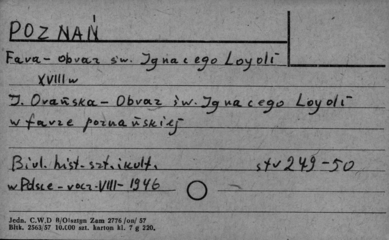 POZNAŃ
Fara - obraz św. Ignacego Loyoli
XVIII w
J. Orańska - Obraz św. Ignacego Loyoli
w farze poznańskiej
Biul. hist. szt. i kult. str 249-50
w Polsce - rocz. VIII - 1946
Jedn. C.W.D 8/Olsztyn Zam 2776/oo/57
Bisk. 2563/57 10.000 szt. karton kl. 7 g 220.